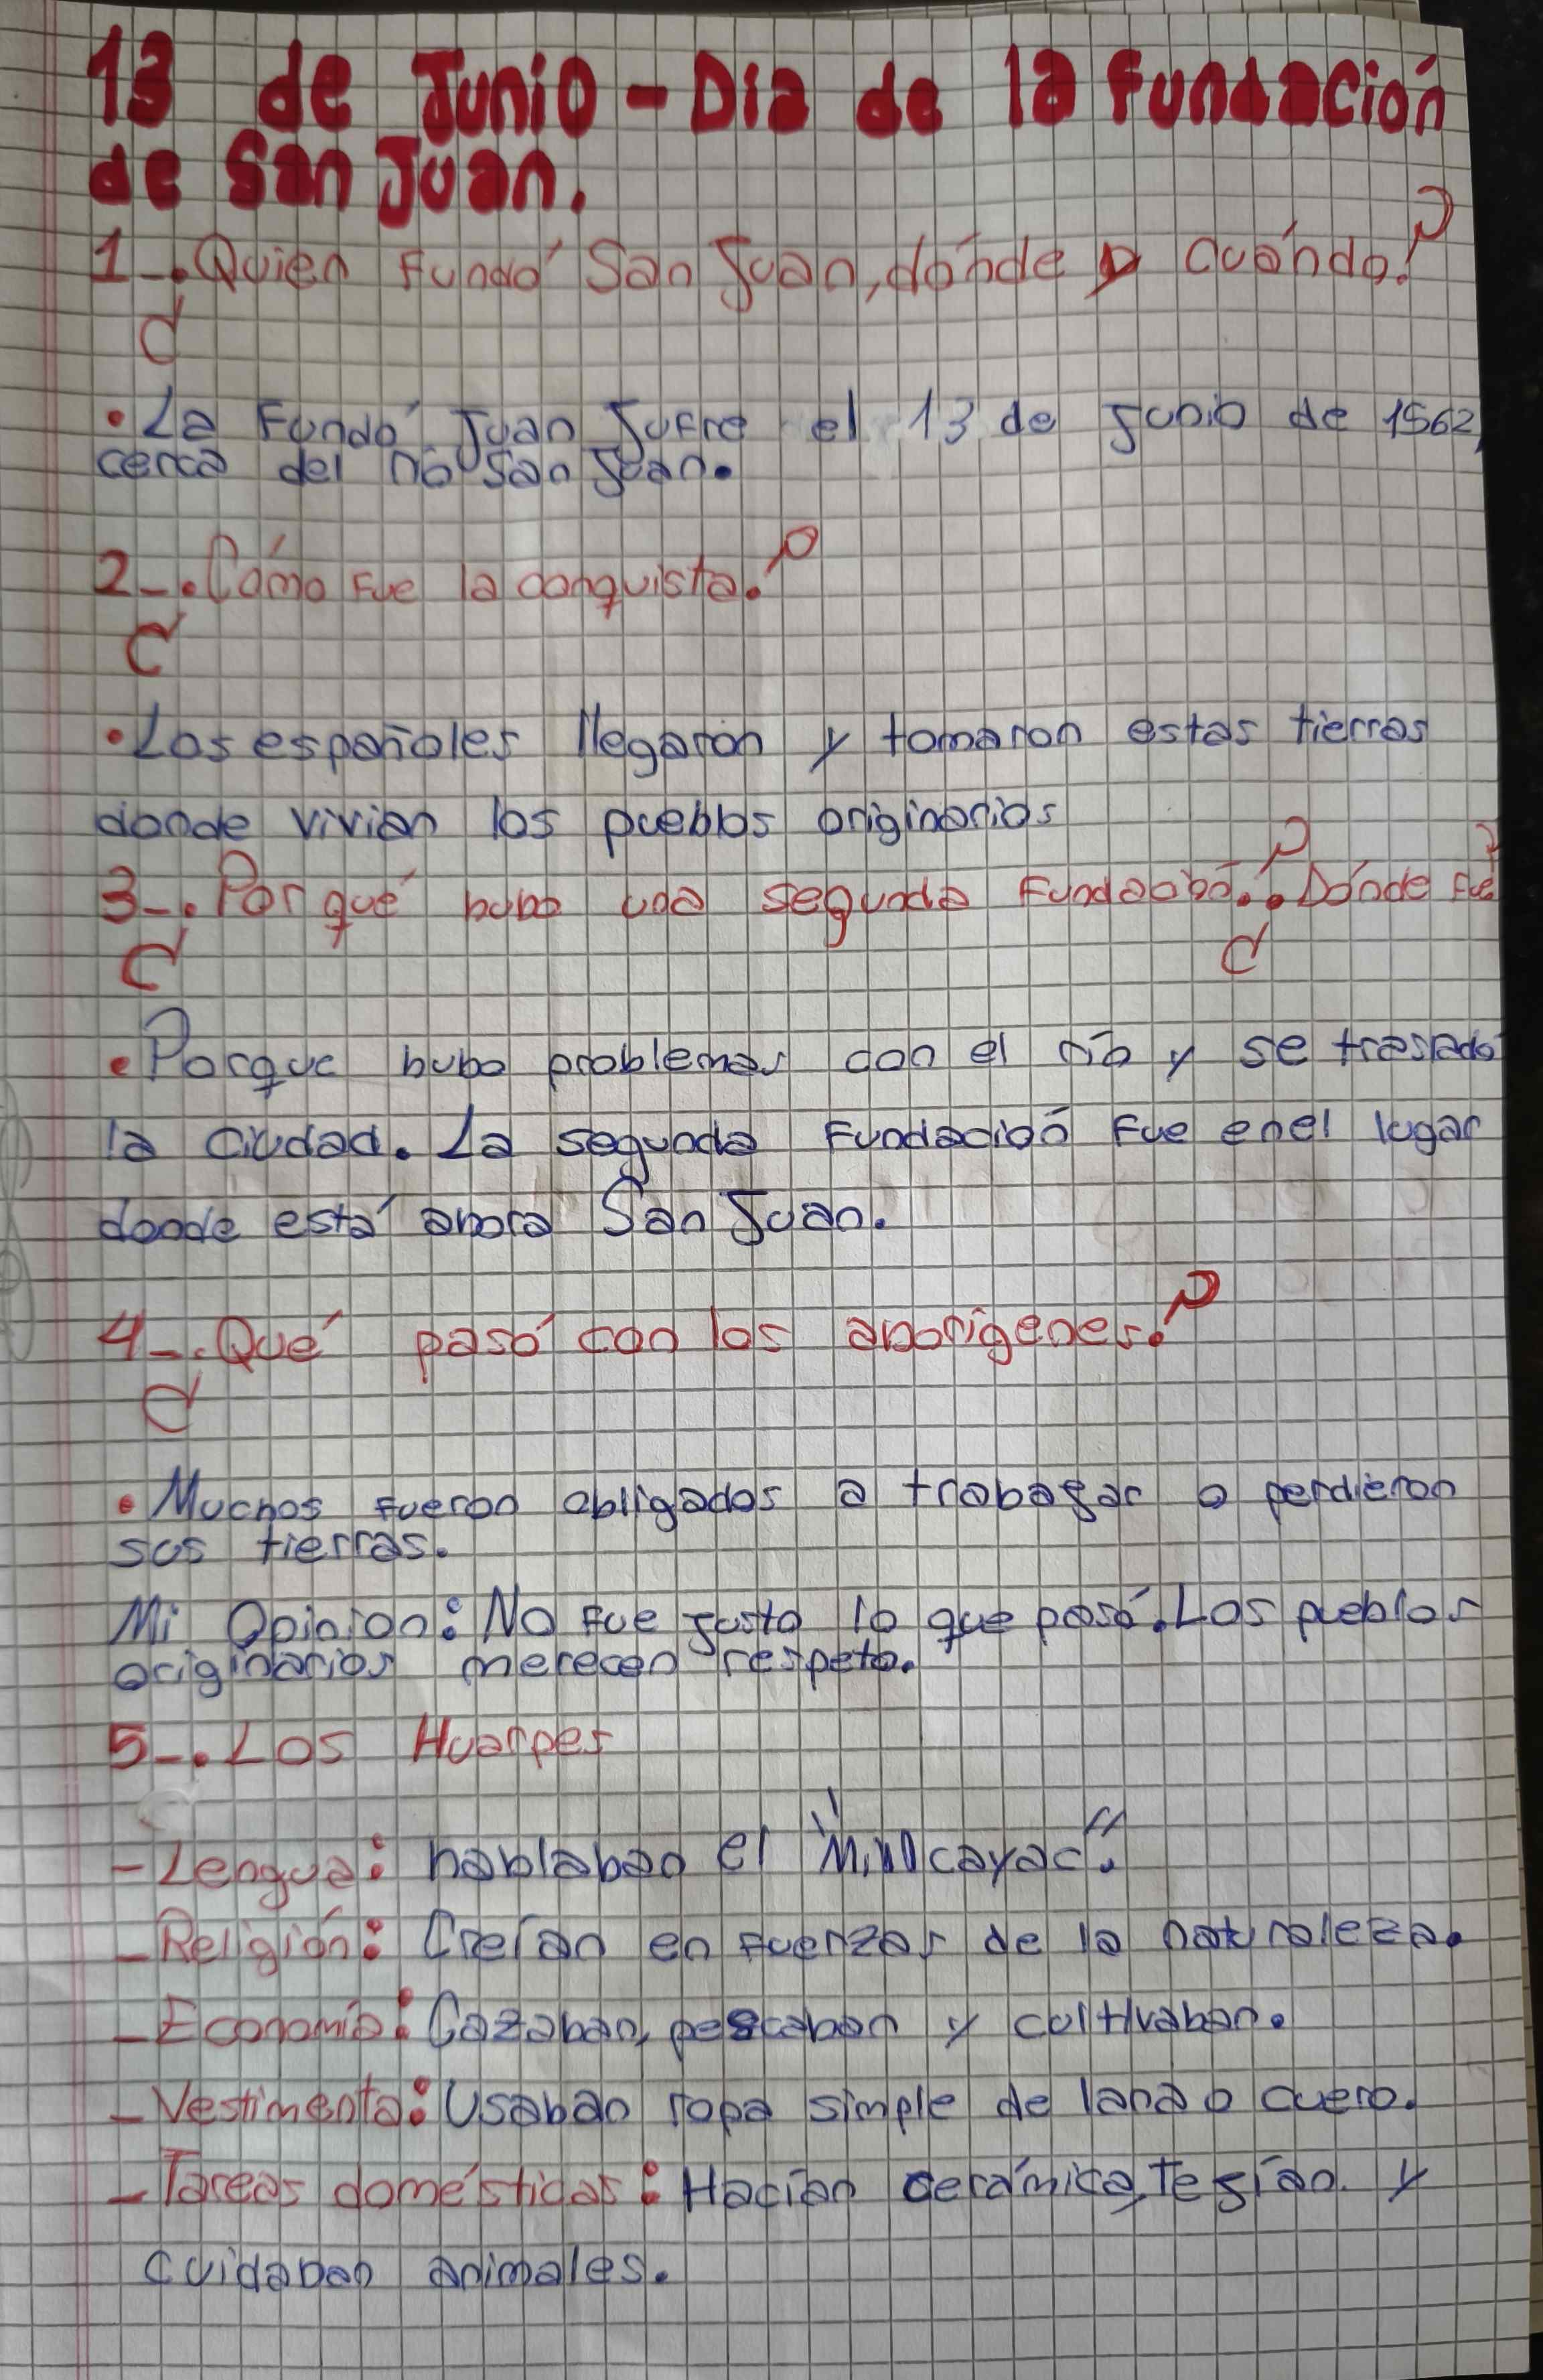 13 de Junio - Dia de la Fundación
de San Juan.
1-. ¿Quien fundó San Juan, dónde y cuándo?
• La Fundó Juan Jufre el 13 de junio de 1562,
cerca del río San Juan.
2-. ¿Cómo fue la conquista?
• Los españoles llegaron y tomaron estas tierras
donde vivian los pueblos originarios
3-. ¿Por qué hubo una segunda Fundación? ¿Dónde fue?
• Porque hubo problemas con el río y se trasladó
la ciudad. La segunda Fundación fue en el lugar
donde está ahora San Juan.
4-. ¿Qué pasó con los aborígenes?
• Muchos fueron obligados a trabajar o perdieron
sus tierras.
Mi Opinion: No fue justo lo que pasó. Los pueblos
originarios merecen respeto.
5-. Los Huarpes
- Lengua: hablaban el "Millcayac".
- Religión: Creían en fuerzas de la naturaleza.
- Economía: Cazaban, pescaban y cultivaban.
- Vestimenta: Usaban ropa simple de lana o cuero.
- Tareas domésticas: Hacían cerámica, Tejían y
cuidaban animales.